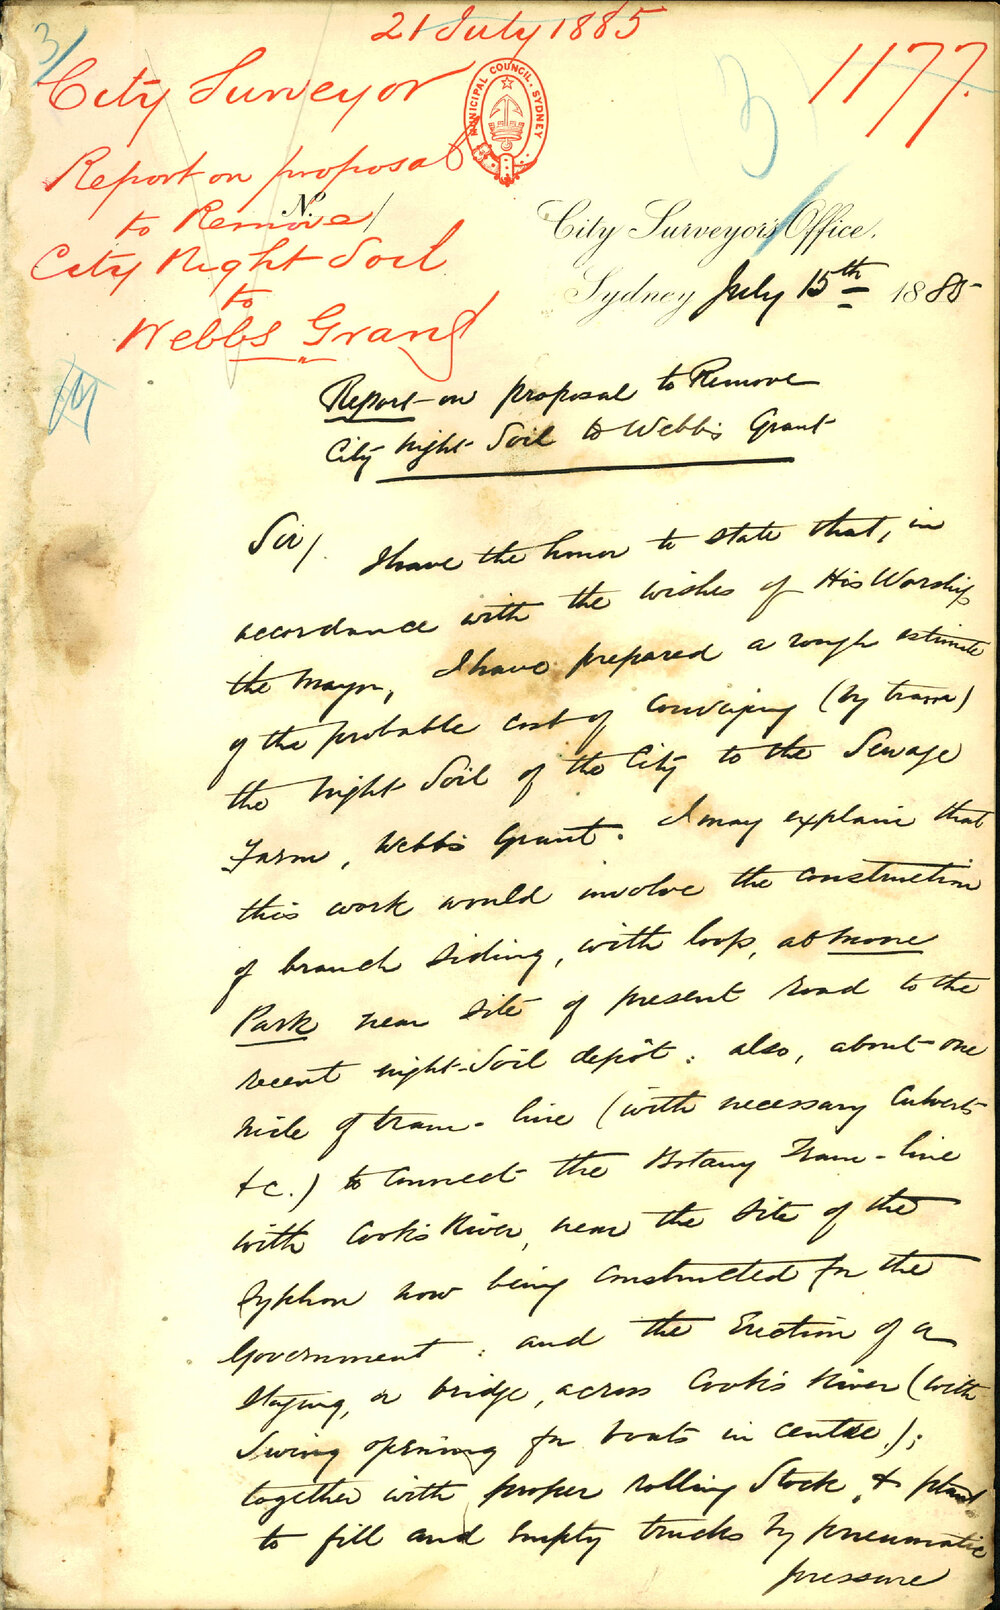 21 July 1885
3/
City Surveyor
1177.
MUNICIPAL COUNCIL. SYDNEY
3/
Report on proposal
to Remove
No.
City Night Soil
to
Webbs Grant
City Surveyor's Office,
Sydney July 15th 1885
Report on proposal to Remove
City Night Soil to Webb's Grant
Sir/. I have the honor to state that, in
accordance with the wishes of His Worship
the Mayor, I have prepared a rough estimate
of the probable cost of conveying (by tram)
the Night Soil of the City to the Sewage
Farm, Webb's Grant. I may explain that
this work would involve the construction
of branch siding, with loop, at Moore
Park near site of present road to the
recent night-soil depôt: also, about one
mile of tram-line (with necessary Culverts
&c.) to connect the Botany Tram-line
with Cook's River, near the site of the
Syphon now being constructed for the
Government: and the Erection of a
Staging, or bridge, across Cook's River (with
Swing opening for boats in centre.);
together with proper rolling Stock, & plant
to fill and empty trucks by pneumatic
pressure